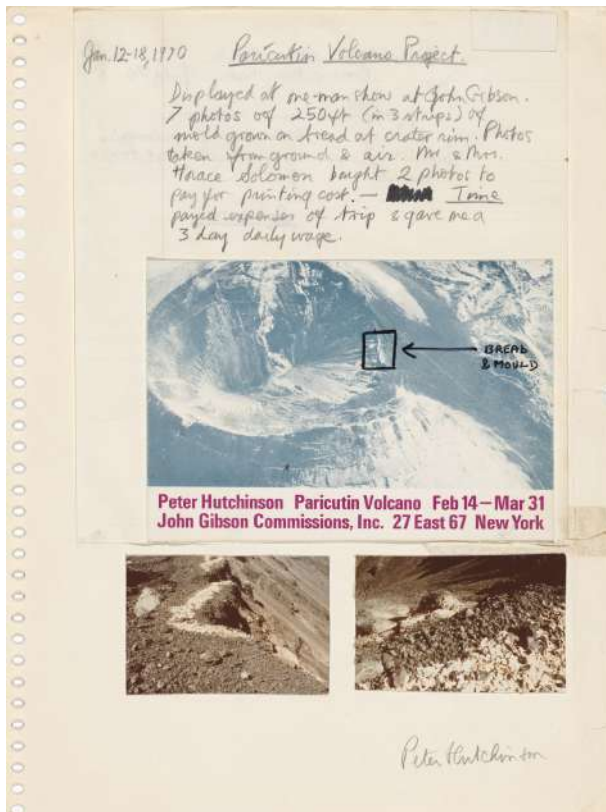 Jan. 12-18, 1970 Paricutin Volcano Project.
Displayed at one-man show at John Gibson.
7 photos of 250ft (in 3 strips) of
mold grown on bread at crater rim. Photos
taken from ground & air. Mr. & Mrs.
Horace Solomon bought 2 photos to
pay for printing cost. — Time
payed expenses of trip & gave me a
3 day daily wage.
BREAD
& MOULD
Peter Hutchinson Paricutin Volcano Feb 14 – Mar 31
John Gibson Commissions, Inc. 27 East 67 New York
Peter Hutchinson